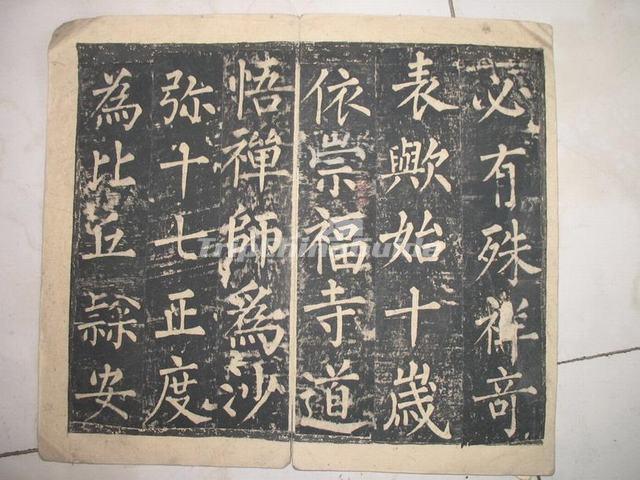 必有殊祥奇
表歟始十歲
依崇福寺道
悟禪師為沙
弥十七正度
為比丘隸安